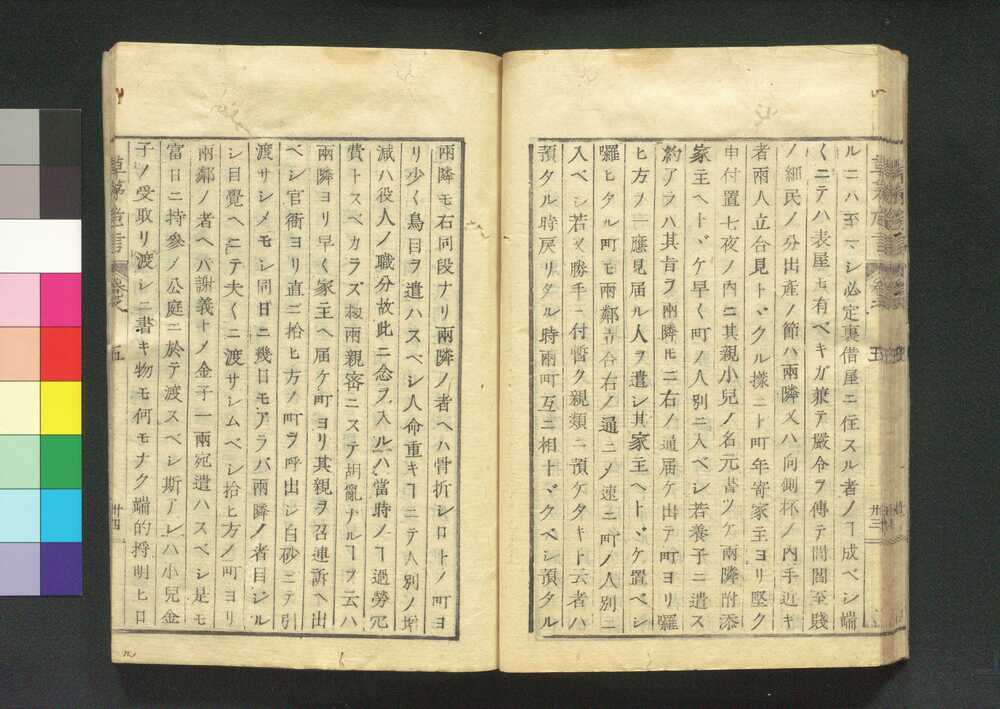 ルニハ至マシ必定裏借屋ニ住スル者ノヿ成ベシ端
〱ニテハ表屋ニモ有ベキガ兼テ嚴令ヲ傳テ閭閻至賤
ノ細民ノ分出産ノ節ハ兩隣又ハ向側杯ノ内手近キ
者兩人立合見トヾクル樣ニト町年寄家主ヨリ堅ク
申付置七夜ノ内ニ其親小兒ノ名元書ノケ兩隣附添
家主ヘトヾケ早く町ノ人別ニ入ベシ若養子ニ遣ス
約アラハ其旨ヲ兩隣ヒニ右ノ通届ケ出テ町ヨリ羅
ヒ方ヲ一應見届ル人ヲ遣シ其家主ヘトヾケ置ベシ
囉ヒタル町モ兩鄰立合右ノ通ニメ速ニ町ノ人別ニ
入ベシ若又勝手ニ付暫ク親類ニ預ケタキト云者ハ
預タル時戻リタル時兩町互ニ相トヾクベシ預タル
草茅危言
五
廿三
兩隣モ右同段ナリ兩隣ノ者ヘハ骨折シロトノ町ヨ
リ少く鳥目ヲ遣ハスベシ人命重キヿニテ人別ノ増
減ハ役人ノ職分故此ニ念ヲ入ルハ當時ノヿ過勞冗
費トスベカラズ扨兩親密ニステ胡亂ナルヿヲ云ハ
兩隣ヨリ早く家主ヘ届ケ町ヨリ其親ヲ召連訴ヘ出
ベシ官衙ヨリ直ニ拾ヒ方ノ町ヲ呼出シ白砂ニテ引
渡サシメモシ同日ニ幾口モアラバ兩隣ノ者目ジル
シ目覺ヘニテ夫くニ渡サシムベシ拾ヒ方ノ町ヨリ
兩鄰ノ者ヘハ謝義トメ金子一兩宛遣ハスベシ是モ
當日ニ持參ノ公庭ニ於テ渡スベシ斯アレハ小兒金
子ノ受取リ渡シニ書キ物モ何モナク端的埒明ヒロ
草茅危言
五
廿四